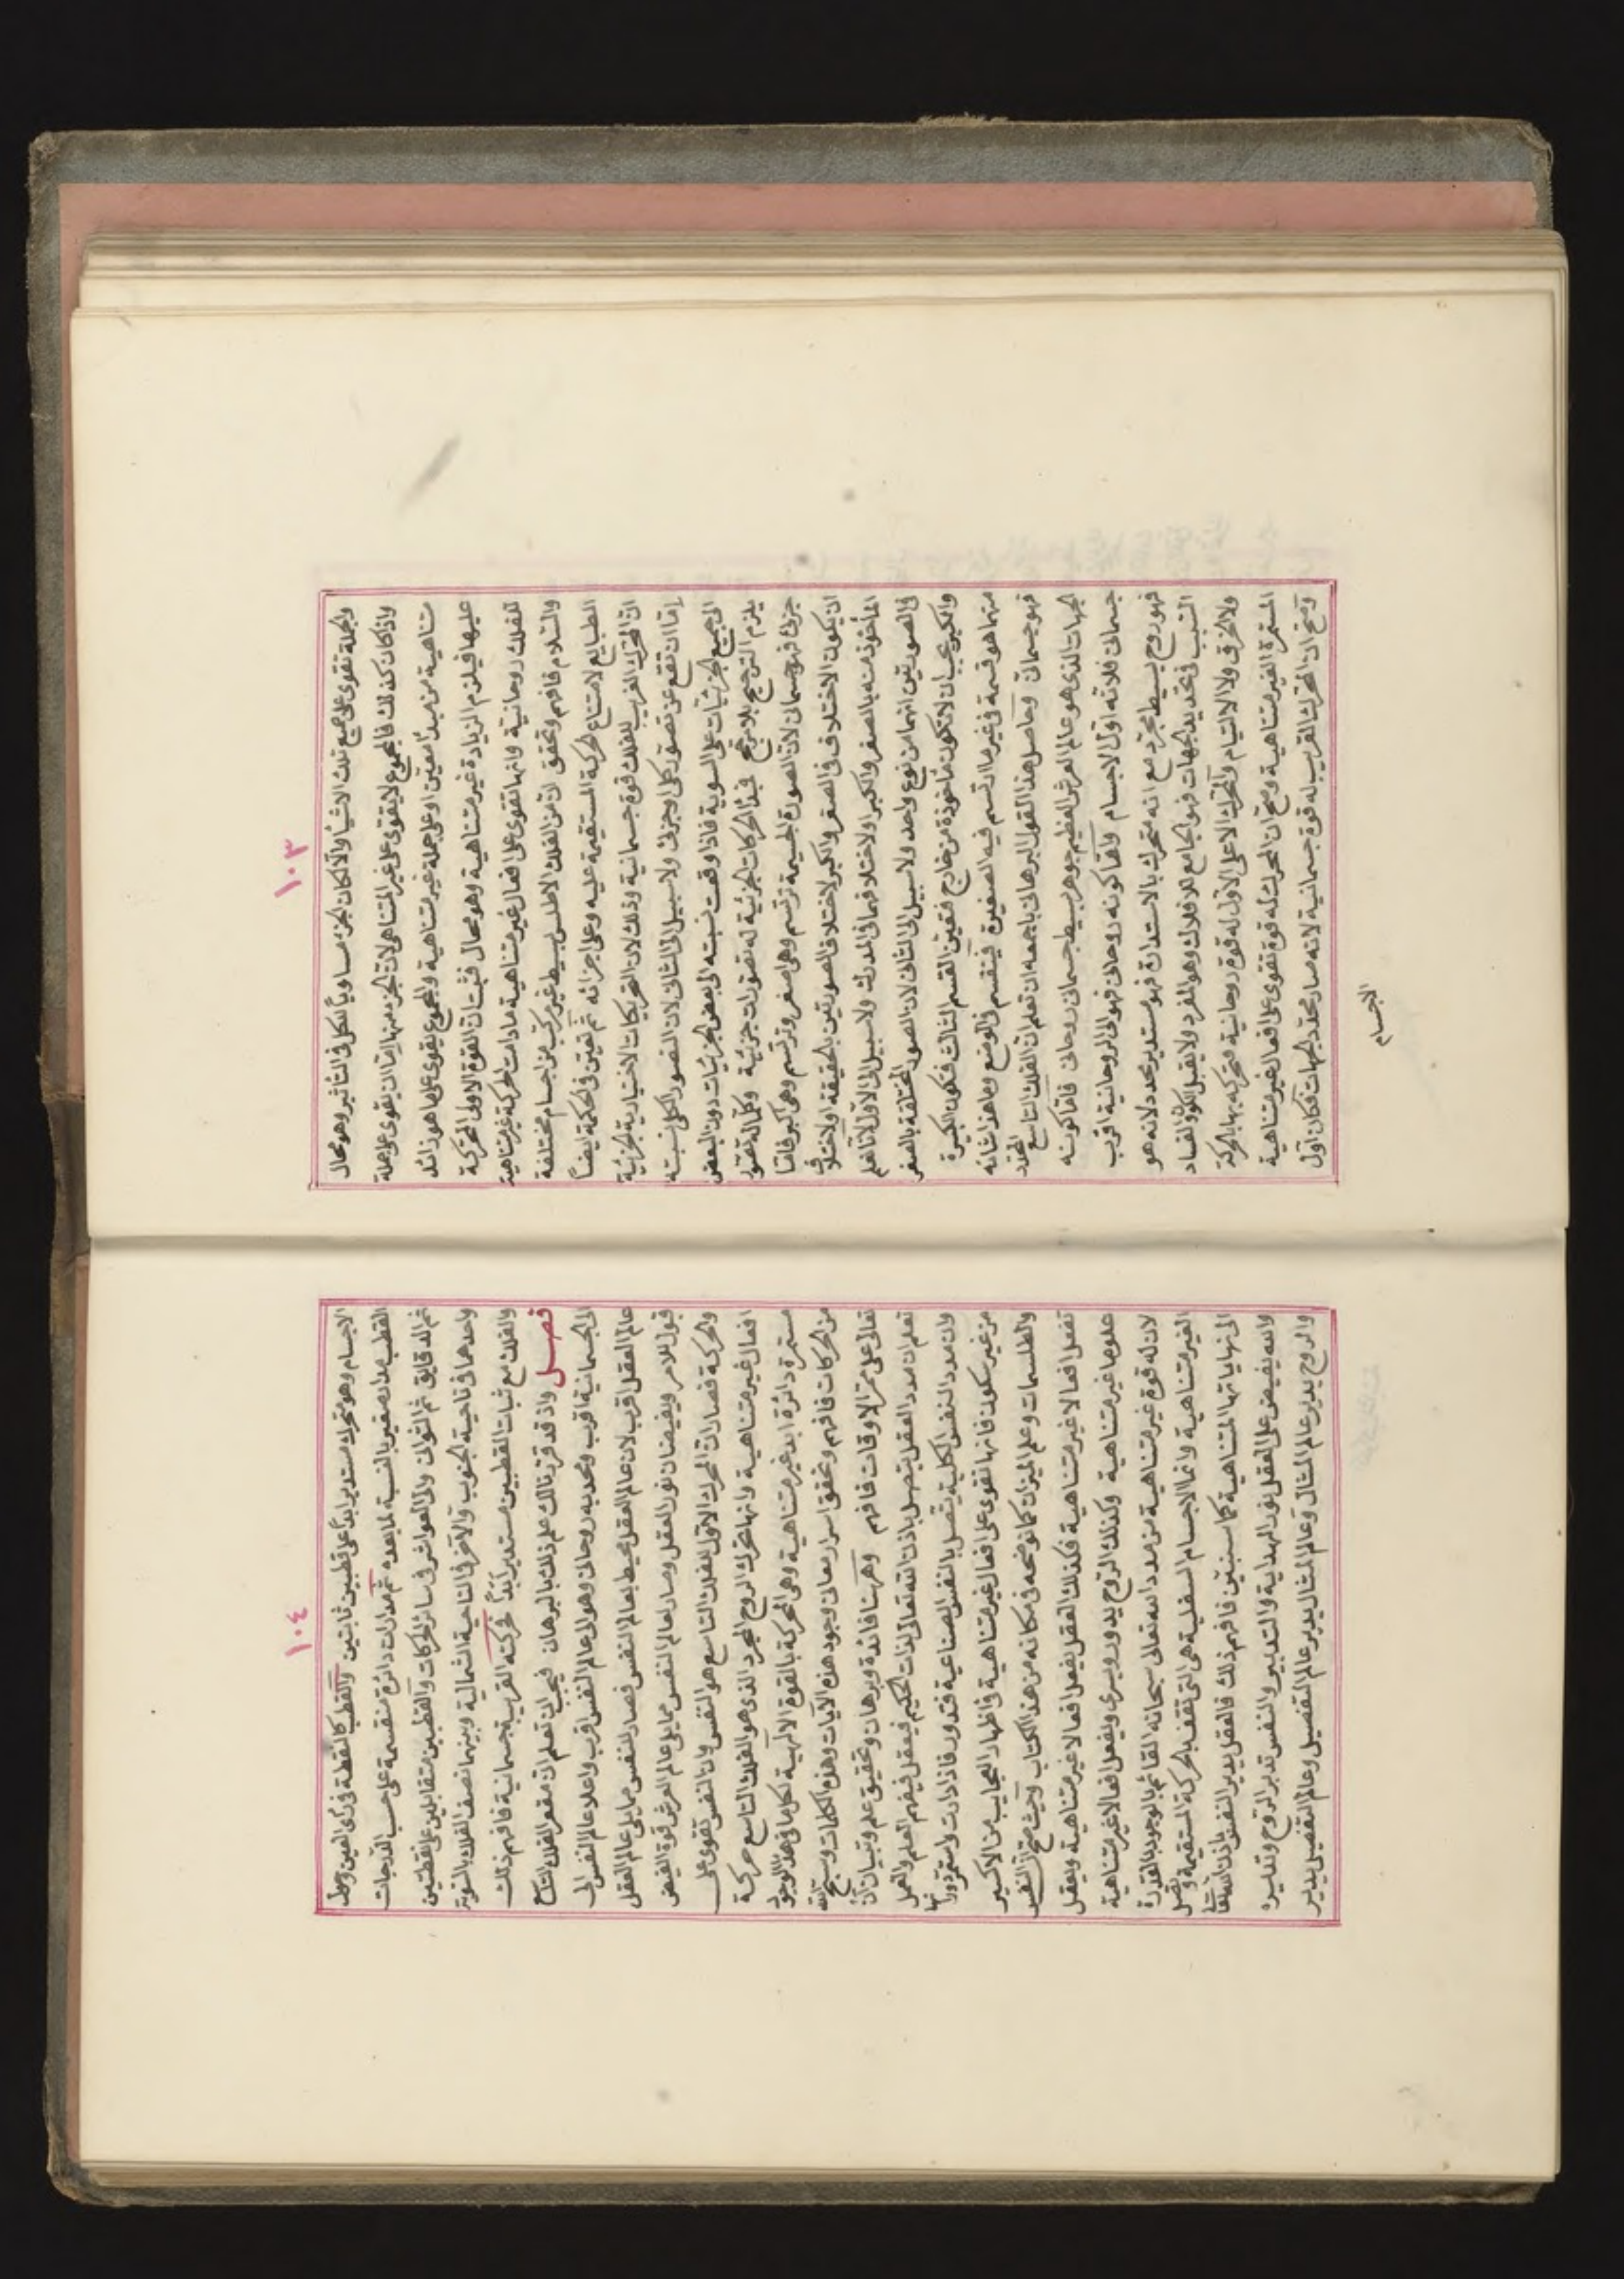 ١٠٣
والجملة تقوى على جميع تلك الاشياء والا لكان الجزء مساويا للكل في التاثير وهو محال
واذا كان كذلك فالمجموع لا يقوى على غير المتناهي لان الجزء منها اما ان يقوى على جملة
متناهية من مبدأ معين او على جملة غير متناهية والمجموع يقوى على ما هو زائد
عليها فيلزم الزيادة غير متناهية وهو محال فثبت ان القوة الاولى المحركة
للفلك روحانية وانها تقوى على افعال غير متناهية ما دامت الحركة غير متناهية
والسلام فافهم وتحقق لان الفلك الاطلس بسيط غير مركب من اجسام مختلفة
الطبايع لامتناع الحركة المستقيمة عليه وعلى اجزائه ثم تعين في الحكمة ايضاً
ان المحرك القريب للفلك قوة جسمانية وذلك لان التحريكات الاختيارية الجزئية
إما ان تقع عن تصور كلى او جزئى ولا سبيل الى الثانى لان التصور الكلى نسبته
الى جميع الجزئيات على السوية فاذا وقعت نسبته الى بعض الجزئيات دون البعض
يلزم الترجيح بلا مرجح فمبدأ الحركات الجزئية له تصورات جزئية وكلما له تصور
جزئى فهو جسمانى لان الصورة الجسيمة ترتسم وهى اصغر وترتسم وهى اكبر فاما
ان يكون الاختلاف في الصغر والكبر لاختلاف الصورتين بالحقيقة او لاختلاف
المأخوذ منه بالصغر والكبر او لاختلافهما في المدرك ولا سبيل الى الاول لانا نعلم
في الصورتين انهما من نوع واحد ولا سبيل الى الثانى لان الصور المختلفة بالصغر
والكبر يجب ان لا تكون مأخوذة من خارج فتعين القسم الثالث فتكون الكبيرة
منهما هو قسمة في غير ما ارتسم فيه الصغيرة فينقسم في الوضع وما هذا شانه
فهو جسمانى وحاصل هذا القول البرهانى باجمعه ان تعلم ان الفلك التاسع المحدد
الجهات الذى هو عالم العرش العظيم جوهر بسيط جسمانى روحانى فاما كونه
جسمانى فلانه اول الاجسام واما كونه روحانى فهو الى الروحانية اقرب
فهو روح بسيط مجرد مع انه متحرك بالاستدارة فهو مستدير محدد لانه هو
السبب في تحديد الجهات فهو الجامع للافلاك وهو المفرد ولا يقبل الكون والفساد
ولا الخرق ولا الالتيام والمحرك الاعلى الاول له قوة روحانية فتحركه بها الحركة
المستمرة الغير متناهية وصح ان المحرك له قوة تقوى على افعال غير متناهية
وصح ان المحرك القريب له قوة جسمانية لانه صار محدد الجهات فكان اول
الاجسام
١٠٤
الاجسام وهو متحرك مستدير ابداً على قطبين ثابتين والقطب كالنقطة في رأى العين وحول
القطب مدار صغير بالنسبة لما بعده ثم مدارات دائرة منقسمة على حسب الدرجات
ثم الدقايق ثم الثوانى والى العواشر في سائر الحركات والقطبين متقابلين على نقطتين
واحدهما في ناحية الجنوب والآخر في الناحية الشمالية وبينهما نصف الفلك بالسوية
والفلك مع ثبات القطبين مستدير ابداً فحركته القريبة جسمانية فافهم ذلك
فصل واذ قد قررنا لك علم ذلك بالبرهان فيجب ان تعلم ان مقعر الفلك التاسع
الى الجسمانية اقرب ومحدبه روحانى وهو الى عالم النفس اقرب واعلا عالم النفس الى
عالم العقل اقرب لان عالم العقل محيط بعالم النفس فصار للنفس مما يلى عالم العقل
قبول للامر وفيضان نور العقل وصار لعالم النفس مما يلى عالم العرش قوة الفيض
والحركة فصار ان المحرك الاول للفلك التاسع هو النفس وان النفس تقوى على
افعال غير متناهية وانها تحرك الروح المجرد الذى هو الفلك التاسع حركة
مستمرة دائرة ابد غير متناهية وهى المحركة بالقوة الالهية لكل ما في هذا الوجود
من الحركات فافهم وتحقق اسرار معانى وجود هذه الآيات وهذه الكلمات وسبح الله
تعالى على ممر الاوقات فافهم وههنا فائدة وبرهان وتحقيق علم وتبيان لان
تعلم ان مدد العقل يتصل باذن الله تعالى لذات الحكيم فيعقل فيفهم العلم والعمل
وان مدد النفس الكلية يتصل بالنفس الصناعية فتدور فاذا دارت واستمر دورانها
من غير سكون فانها تقوى على افعال غير متناهية واظهار العجايب من الاكسير
والطلسمات وعلم الميزان كما نوضحه في مكانه من هذا الكتاب وحيث صح ان النفس
تفعل افعالا غير متناهية فكذلك العقل يفعل افعالا غير متناهية ويعقل
علوما غير متناهية وكذلك الروح يدور ويسرى ويفعل افعالا غير متناهية
لان له قوة غير متناهية من مدد الله تعالى سبحانه القائم بالوجود بالقدرة
الغير متناهية وانما الاجسام السفلية هى التى تقف بالحركة المستقيمة وتصل
الى نهاياتها المتناهية كما سنبين فافهم ذلك فالعقل يدير النفس باذن الله تعالى
والله يفيض على العقل نور الهداية والتدبير والنفس تدير الروح وتدبره
والروح يدير عالم المثال وعالم المثال يدير عالم التفصيل وعالم التفصيل يدير